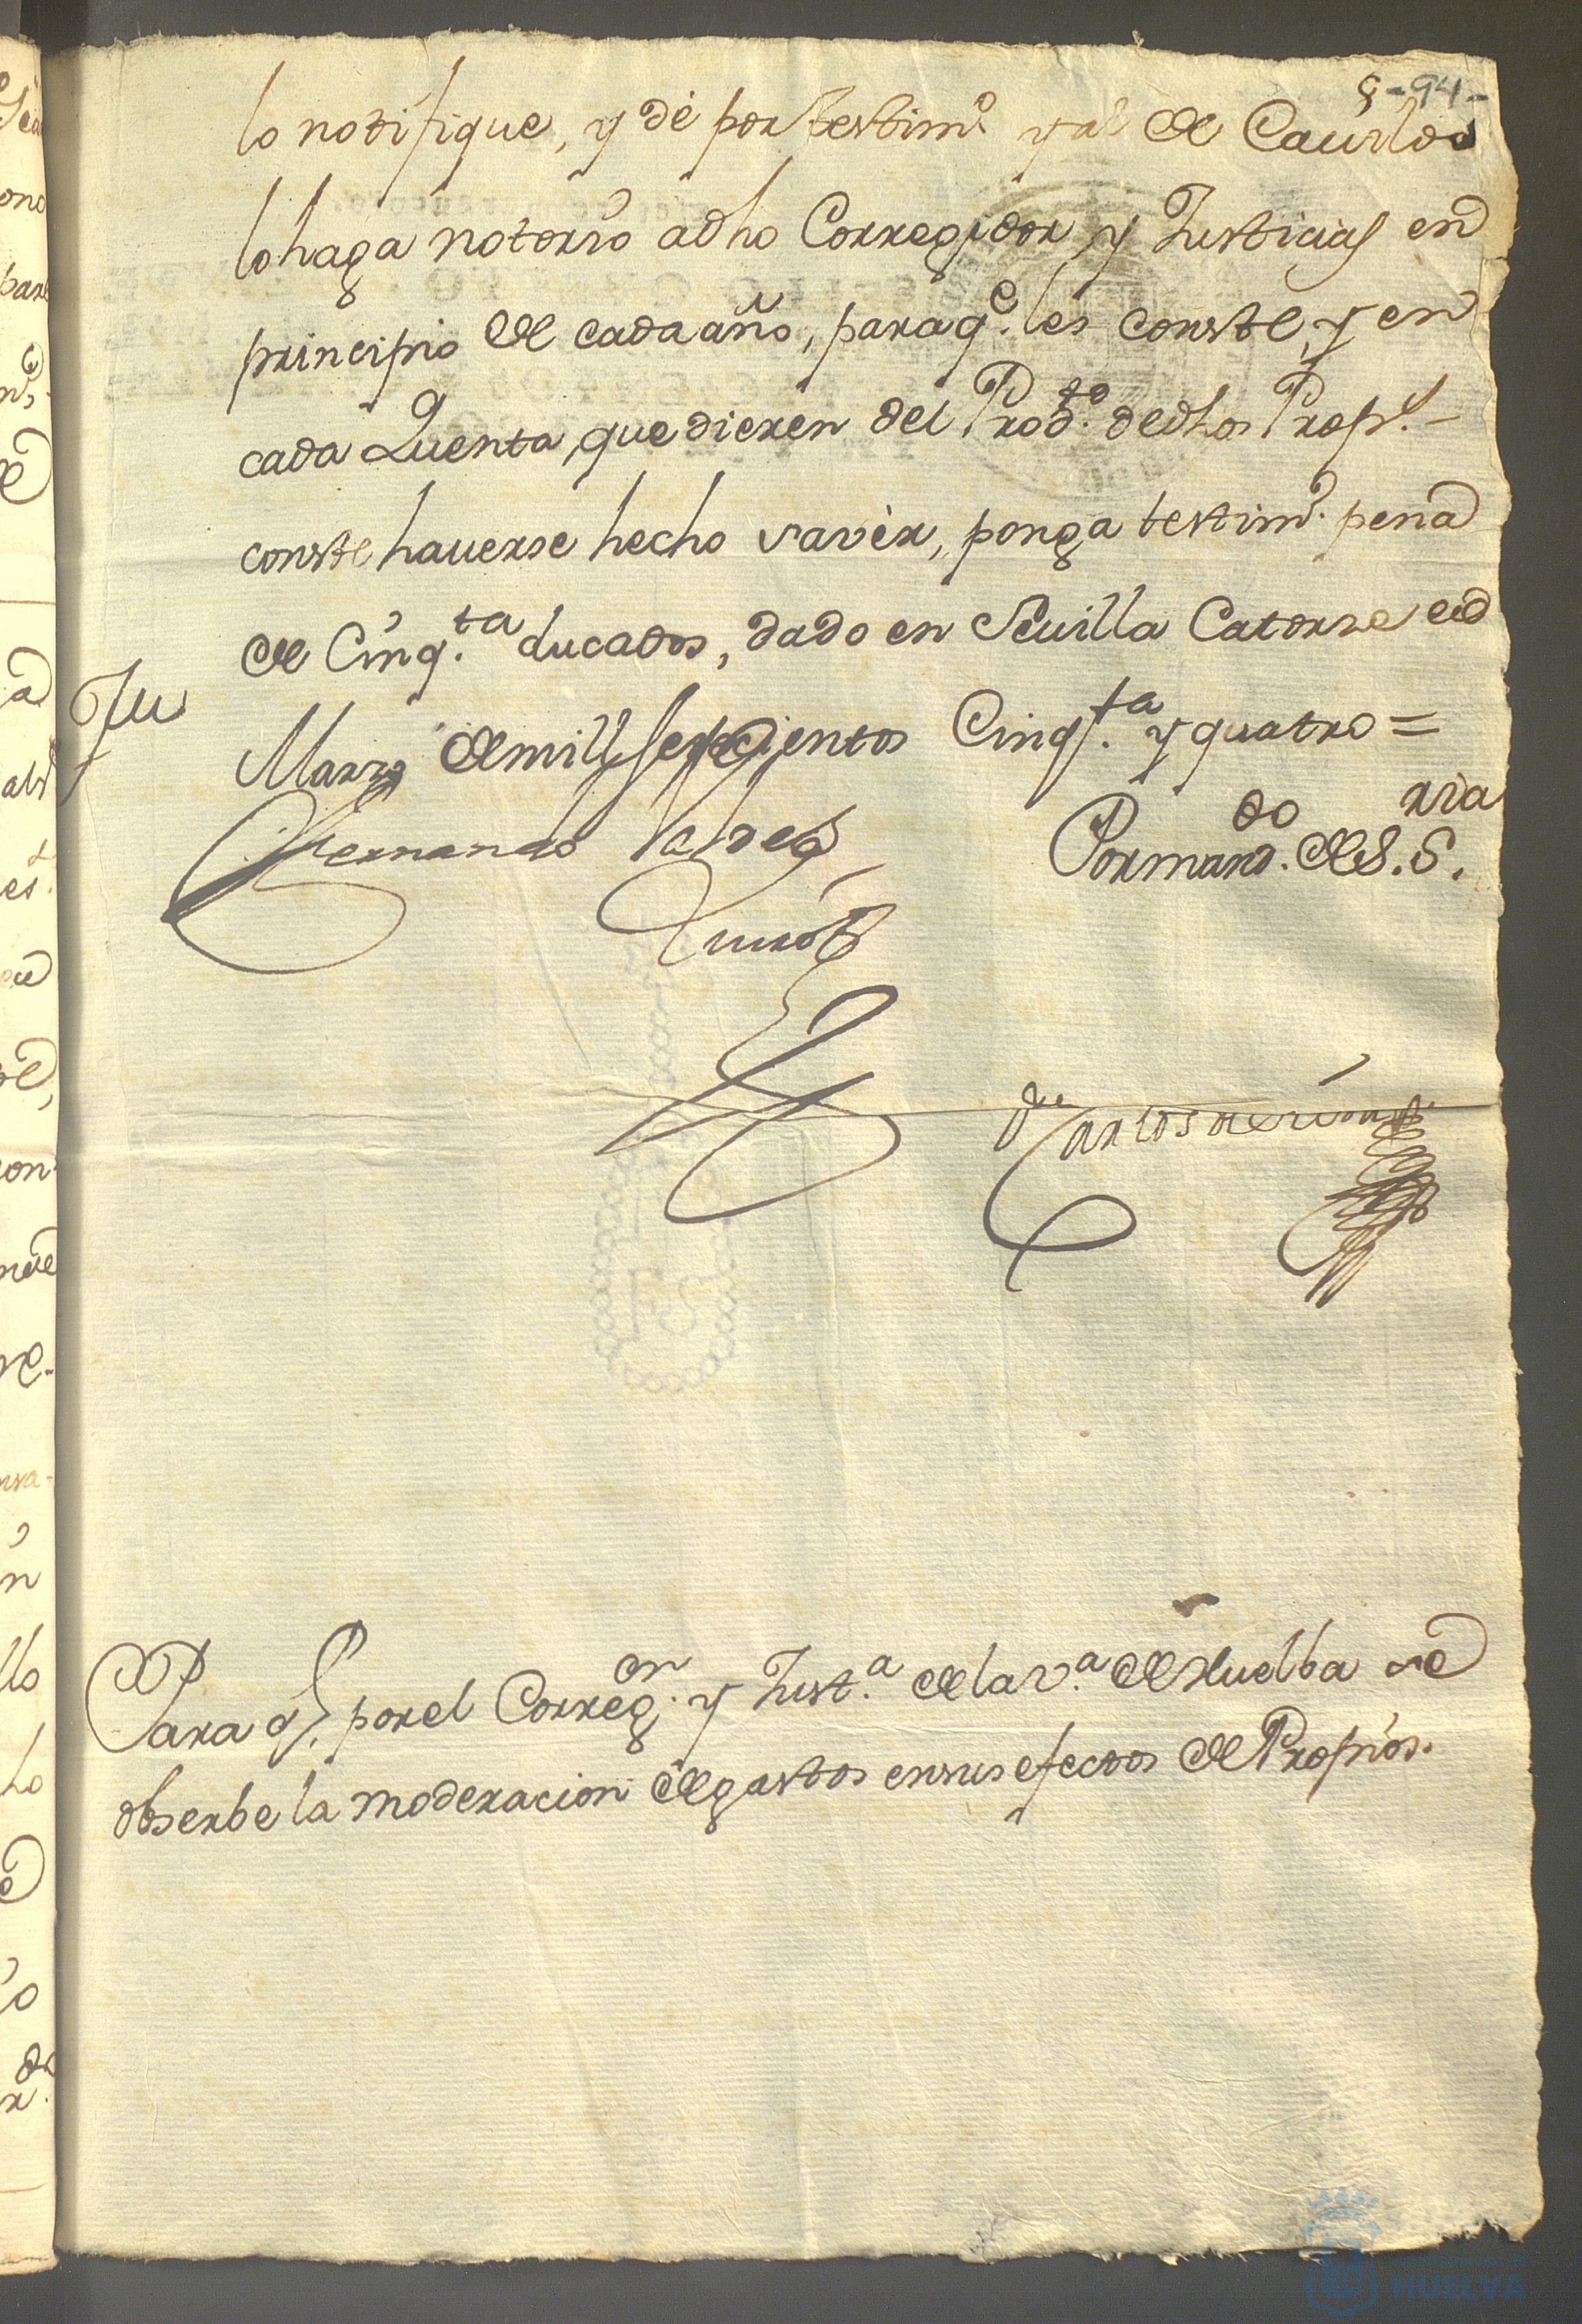 9-94-
lo notifique, y dè por testim.º y al de Cauildo
lo haga notorio adho Corregidor y Justicias en
principio de cada año, paraq.e les conste, y en
cada Quenta, que dieren del Prod.to de dhos Prop.s
conste hauerse hecho savèr, ponga testim.º pena
de Cinq.ta ducados, dado en Seuilla Catorze de
Marzo de mill setecientos Cinq.ta y quatro =
Fernando Valdes
Quirós
Por mand.do de S. S.ria
Dn Carlos
Para q.e por el Correg.or y Just.a de la v.a de Huelba se
obserbe la moderacion de gastos en sus efectos de Propios.
HUELVA